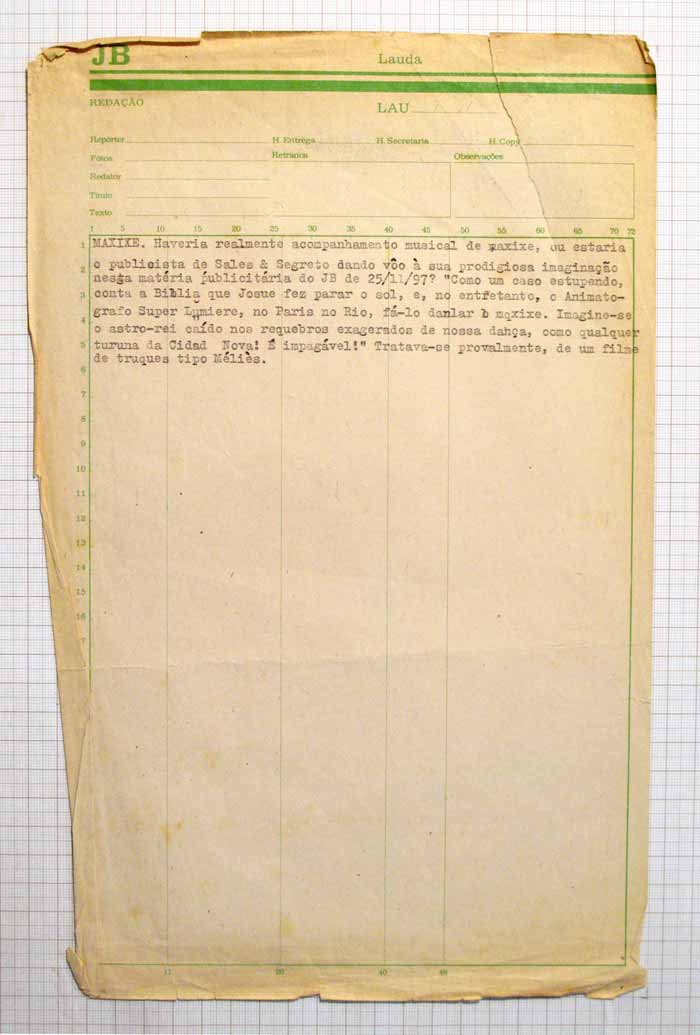 JB Lauda
REDAÇÃO LAU
Repórter H. Entrega H. Secretaria H. Copy
Fotos Retranca Observações
Redator
Título
Texto
1 5 10 15 20 25 30 35 40 45 50 55 60 65 70 72
1 MAXIXE. Haveria realmente acompanhamento musical de maxixe, ou estaria
2 o publicista de Sales & Segreto dando vôo à sua prodigiosa imaginação
nessa matéria publicitária do JB de 25/11/97? "Como um caso estupendo,
3 conta a Biblia que Josue fez parar o sol, e, no entfetanto, o Animato-
4 grafo Super Lumiere, no Paris no Rio, fá-lo danlar b maxixe. Imagine-se
o astro-rei caído nos requebros exagerados de nossa dança, como qualquer
5 turuna da Cidad Nova! É impagável!" Tratava-se provalmente, de um filme
de truques tipo Méliès.
6
7
8
9
10
11
12
13
14
15
16
7
11 26 40 48